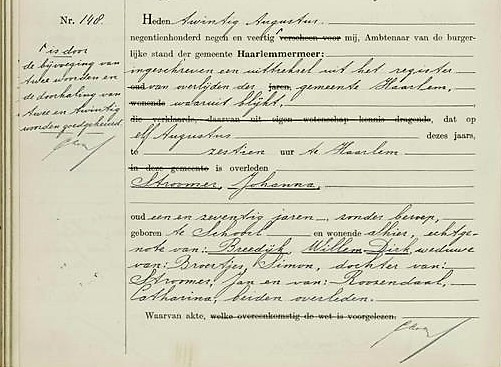 Nr. 148.
is door
de bijvoeging van
twee woorden en
de doorhaling van
twee en twintig
woorden goedgekeurd.
Heden twintig Augustus
negentienhonderd negen en veertig verscheen voor mij, Ambtenaar van de burger-
lijke stand der gemeente Haarlemmermeer:
ingeschreven een uittreksel uit het register
oud van overlijden der jaren, gemeente Haarlem,
wonende waaruit blijkt,
die verklaarde, daarvan uit eigen wetenschap kennis dragende, dat op
elf Augustus dezes jaars,
te zestien uur te Haarlem
in deze gemeente is overleden
Stroomer, Johanna,
oud een en zeventig jaren, zonder beroep,
geboren te Schoorl en wonende alhier, echtge-
note van: Breedijk, Willem Dirk, weduwe
van: Broertjes, Simon, dochter van:
Stroomer, Jan en van: Roosendaal,
Catharina, beiden overleden.
Waarvan akte, welke overeenkomstig de wet is voorgelezen.